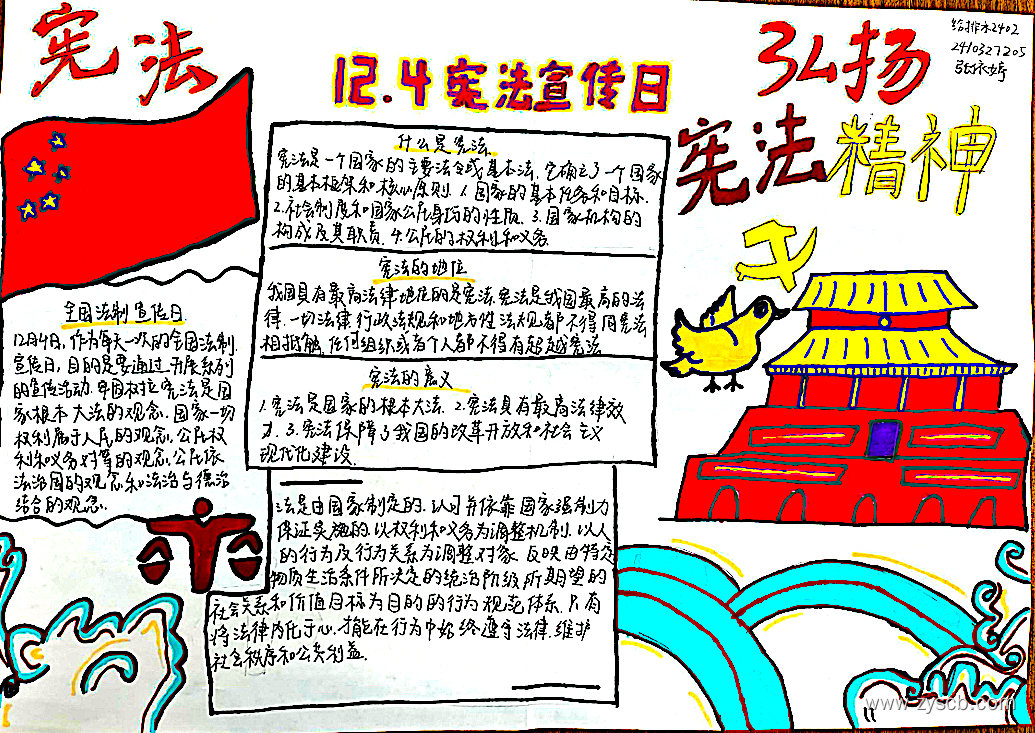 宪法
12.4宪法宣传日
弘扬
宪法精神
给排水2402
2410327205
什么是宪法
宪法是一个国家的主要法令或基本法,它确立了一个国家
的基本框架和核心原则.1.国家的基本任务和目标.
2.社会制度和国家公民身份的性质.3.国家机构的
构成及其职责.4.公民的权利和义务
宪法的地位
我国具有最高法律地位的是宪法.宪法是我国最高的法
律.一切法律行政法规和地方性法规都不得同宪法
相抵触.任何组织或者个人都不得有超越宪法
宪法的意义
1.宪法是国家的根本大法.2.宪法具有最高法律效
力.3.宪法保障了我国的改革开放和社会主义
现代化建设.
全国法制宣传日
12月4日,作为每年一次的全国法制
宣传日,目的是要通过开展系列
的宣传活动.牢固树立宪法是国
家根本大法的观念.国家一切
权利属于人民的观念.公民权
利和义务对等的观念.公民依
法治国的观念和法治与德治
结合的观念.
法是由国家制定的.认可并依靠国家强制力
保证实施的.以权利和义务为调整机制.以人
的行为及行为关系为调整对象.反映由特定
物质生活条件所决定的统治阶级所期望的
社会关系和价值目标为目的的行为规范体系.只有
将法律内化于心.才能在行为中始终遵守法律.维护
社会秩序和公共利益.
www.zyscb.com